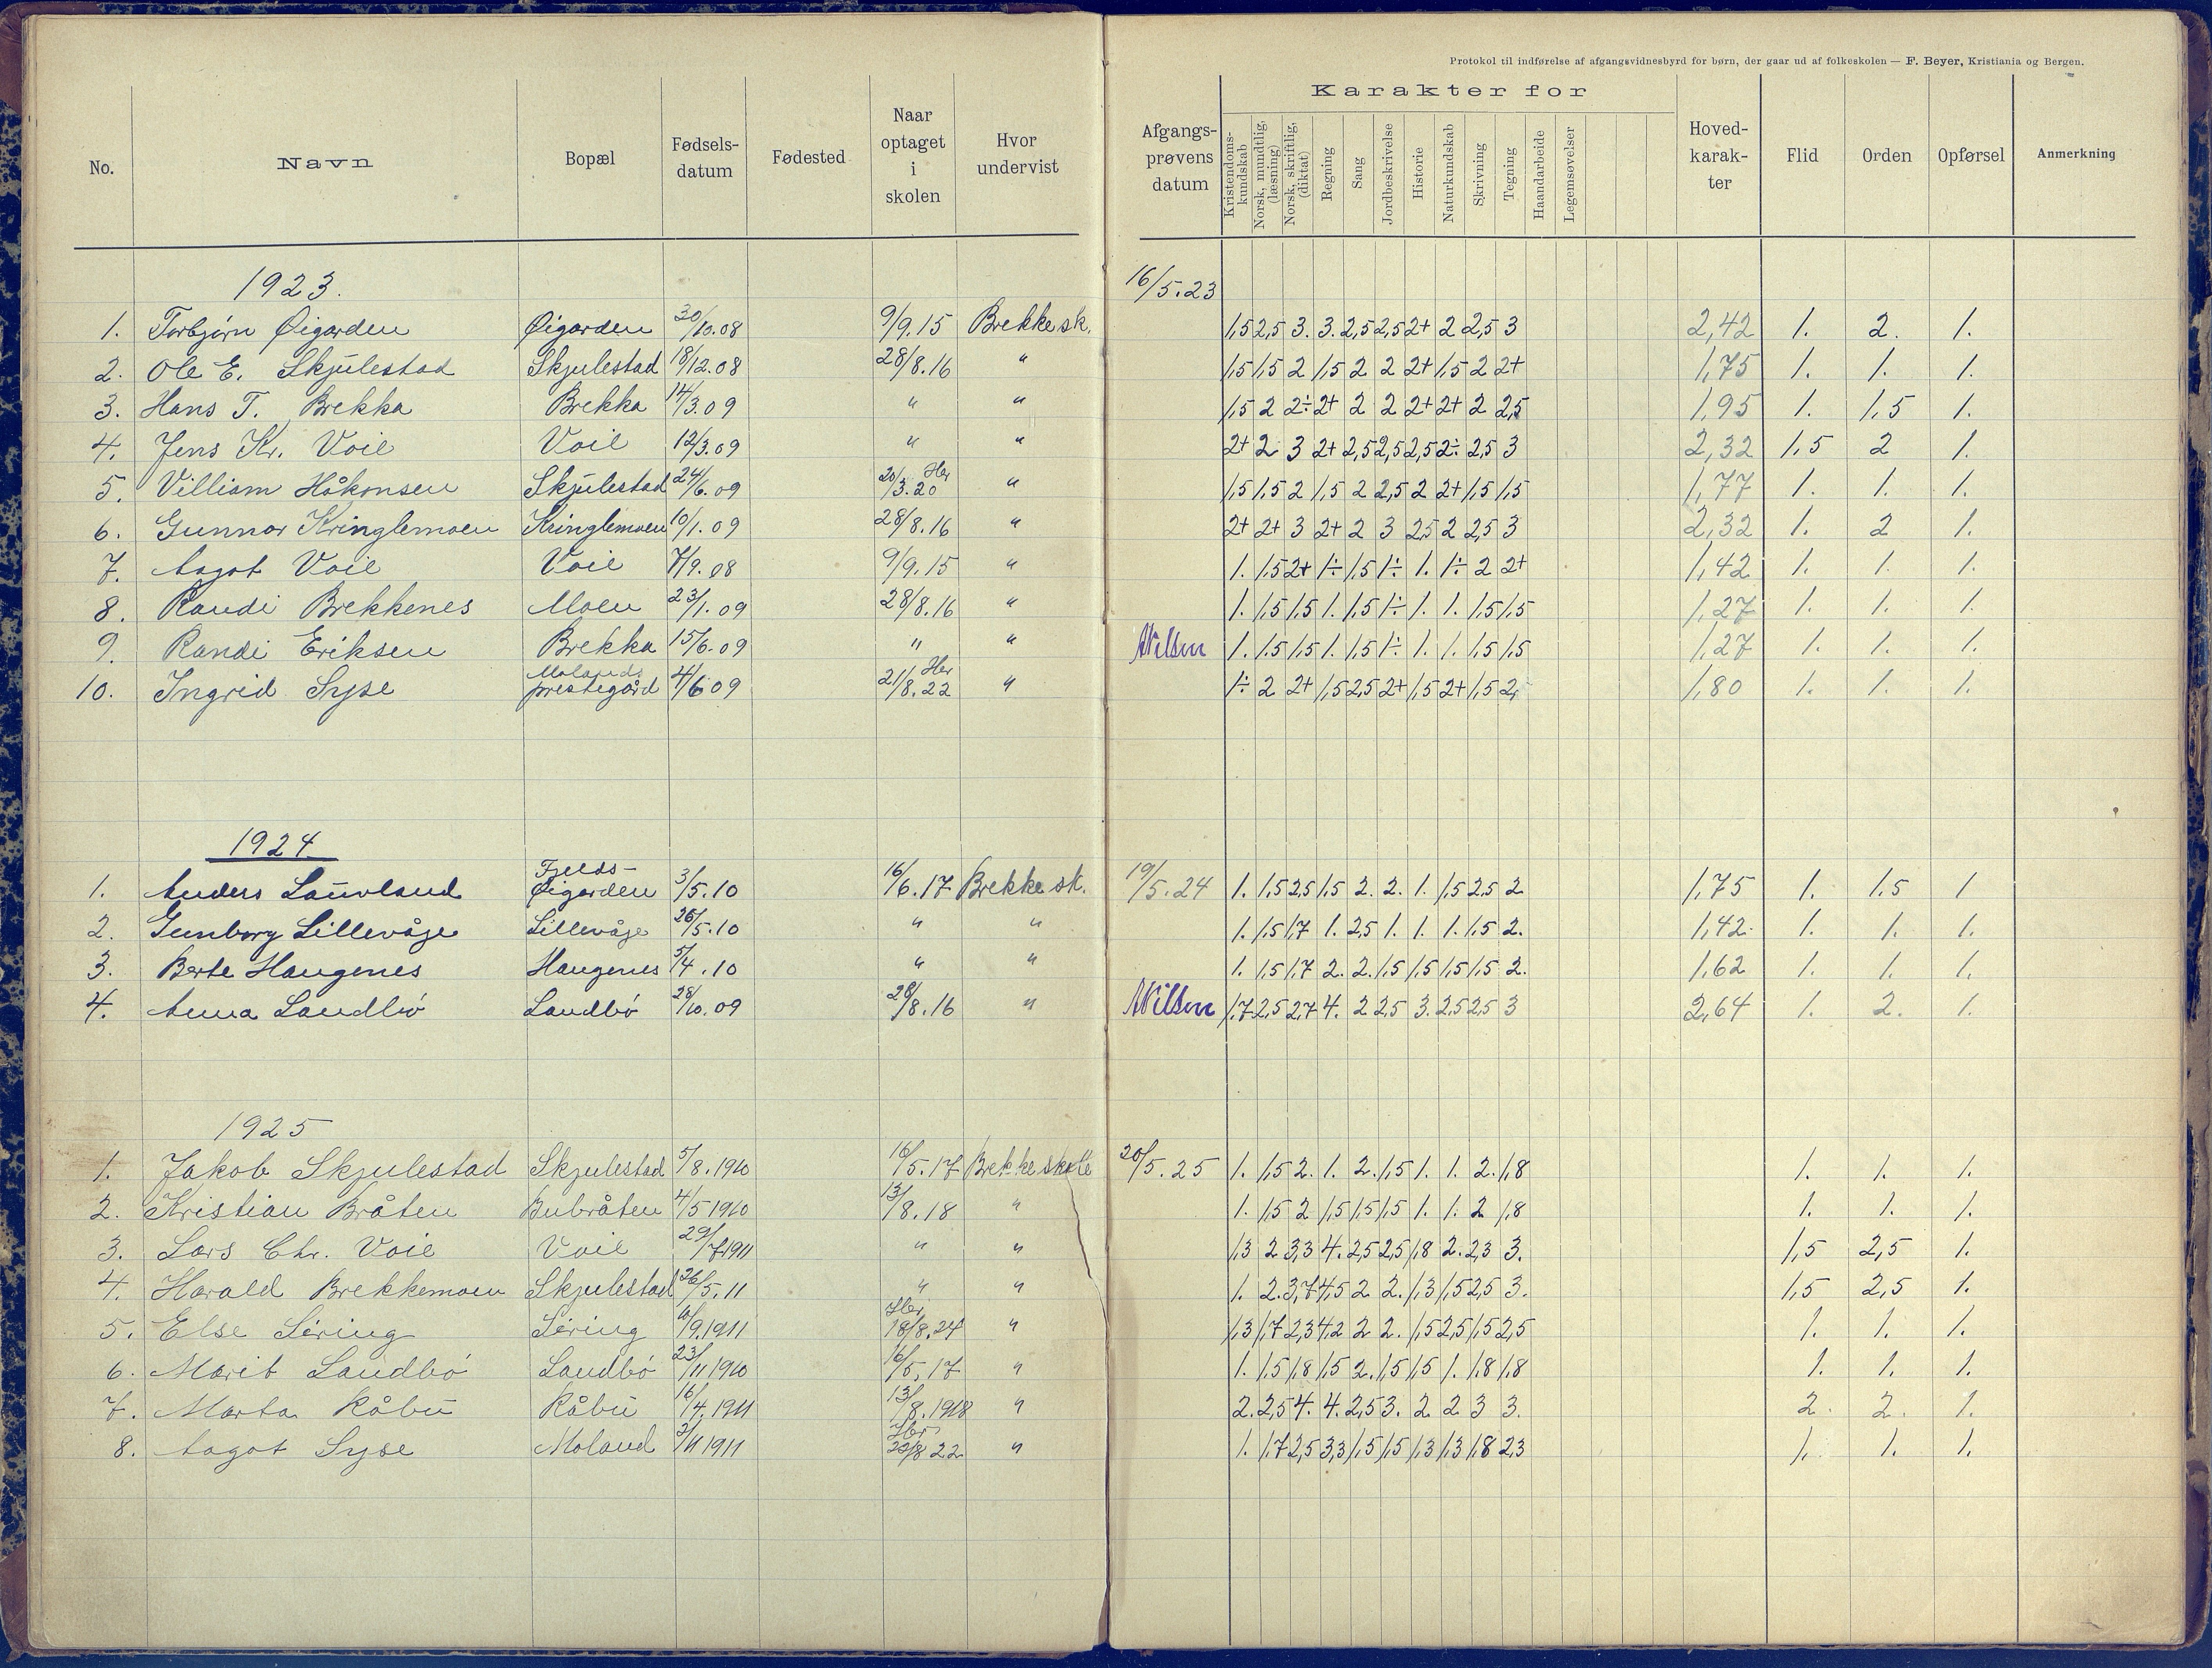 Protokol til indførelse af afgangsvidnesbyrd for børn, der gaar ud af folkeskolen — F. Beyer, Kristiania og Bergen.
No. Navn Bopæl Fødsels-datum Fødested Naar optaget i skolen Hvor undervist Afgangs-prøvens datum Karakter for Kristendoms-kundskab Norsk, mundtlig, (læsning) Norsk, skriftlig, (diktat) Regning Sang Jordbeskrivelse Historie Naturkundskab Skrivning Tegning Haandarbeide Legemsøvelser Hoved-karak-ter Flid Orden Opførsel Anmerkning
1923. 16/5.23
1. Torbjørn Øigarden Øigarden 30/10.08 9/9.15 Brekke sk. 1,5 2,5 3. 3. 2,5 2,5 2+ 2 2,5 3 2,42 1. 2. 1.
2. Ole E. Skjulestad Skjulestad 18/12.08 28/8.16 " 1,5 1,5 2 1,5 2 2 2+ 1,5 2 2+ 1,75 1. 1. 1.
3. Hans T. Brekka Brekka 14/3.09 " " 1,5 2 2÷ 2+ 2 2 2+ 2+ 2 2,5 1,95 1. 1,5 1.
4. Jens Kr. Voie Voie 12/3.09 " " 2+ 2 3 2+ 2,5 2,5 2,5 2÷ 2,5 3 2,32 1,5 2 1.
5. Villiam Håkonsen Skjulestad 24/6.09 Her 20/3.20 " 1,5 1,5 2 1,5 2 2,5 2 2+ 1,5 1,5 1,77 1. 1. 1.
6. Gunnar Kringlemoen Kringlemoen 10/1.09 28/8.16 " 2+ 2+ 3 2+ 2 3 2,5 2 2,5 3 2,32 1. 2 1.
7. Aagot Voie Voie 7/9.08 9/9.15 " 1. 1,5 2+ 1÷ 1,5 1÷ 1. 1÷ 2 2+ 1,42 1. 1. 1.
8. Randi Brekkenes Moen 23/1.09 28/8.16 " 1. 1,5 1,5 1. 1,5 1÷ 1. 1. 1,5 1,5 1,27 1. 1. 1.
9. Randi Eriksen Brekka 15/6.09 " " ANilsen 1. 1.5 1,5 1. 1,5 1÷ 1. 1. 1,5 1,5 1,27 1. 1. 1.
10. Ingrid Syse Molands prestegård 4/6 09 Her 21/8.22 " 1÷ 2 2+ 1,5 2,5 2+ 1,5 2+ 1,5 2, 1,80 1. 1. 1.
1924
1. Anders Lauvland Fjelds-Øigarden 3/5.10 16/6.17 Brekke sk. 19/5.24 1. 1,5 2,5 1,5 2. 2. 1. 1,5 2,5 2 1,75 1. 1,5 1
2. Gunborg Lillevåje Lillevåje 26/5.10 " " 1. 1,5 1,7 1. 2,5 1. 1. 1. 1,5 2. 1,42. 1. 1. 1.
3. Berte Haugenes Haugenes 5/4.10 " " 1. 1,5 1,7 2. 2. 1,5 1,5 1,5 1,5 2. 1,62 1. 1. 1.
4. Anna Landbø Landbø 28/10.09 28/8.16 " ANilsen 1,7 2,5 2,7 4. 2 2,5 3. 2,5 2,5 3 2,64 1. 2. 1.
1925
1. Jakob Skjulestad Skjulestad 5/8.1910 16/5.17 Brekke skole 20/5.25 1. 1,5 2. 1. 2. 1,5 1. 1. 2. 1,8 1. 1. 1.
2. Kristian Bråten Bubråten 4/5 1910 13/8.18 " 1. 1,5 2 1,5 1,5 1,5 1. 1. 2 1,8 1. 1. 1.
3. Lars Chr. Voie Voie 29/7.1911 " " 1,3 2 3,3 4. 2,5 2,5 1,8 2. 2,3 3. 1,5 2,5 1.
4. Harald Brekkemoen Skjulestad 26/5.11 " " 1. 2. 3,7 4,5 2 2. 1,3 1,5 2,5 3. 1,5 2,5 1.
5. Else Sering Sering /9.1911 Her 18/8.24 " 1,3 1,7 2,3 4,2 2 2. 1,5 2,5 1,5 2,5 1. 1. 1.
6. Marit Landbø Landbø 23/11 1910 16/5.17 " 1. 1,5 1,8 1,5 2. 1,5 1,5 1. 1,8 1,8 1. 1. 1.
7. Marta Råbu Råbu 16/4.1911 13/8.1918 " 2. 2,5 4. 4. 2,5 3. 2 2 3 3. 2. 2. 1.
8. Aagot Syse Moland 3/11 1911 Her 22/8 22 " 1. 1,7 2,5 3,3 1,5 1,5 1,3 1,3 1,8 2,3 1. 1. 1.